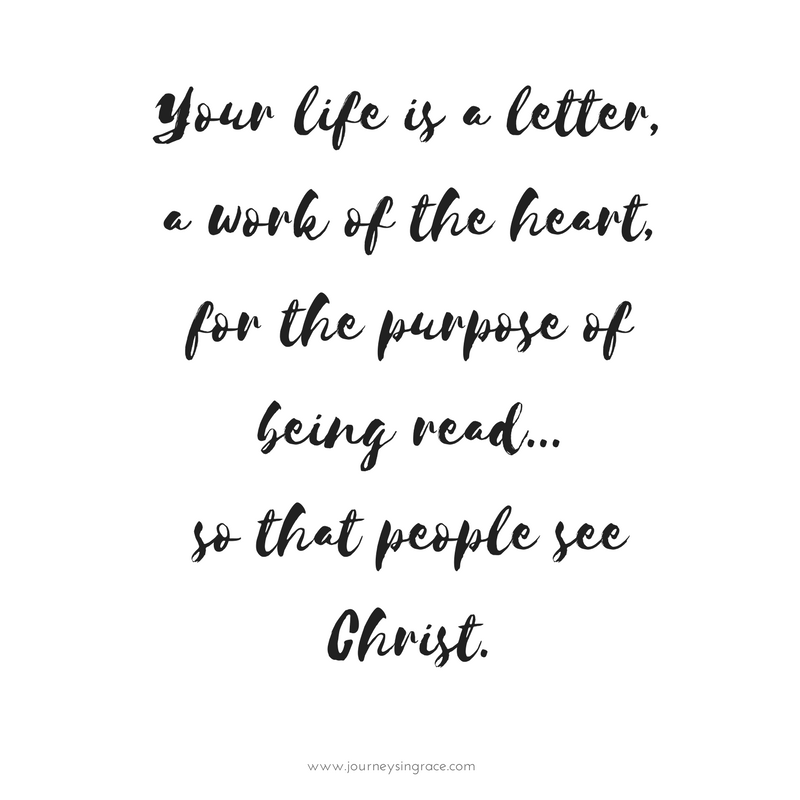 Your life is a letter,
a work of the heart,
for the purpose of
being read...
so that people see
Christ.
www.journeysingrace.com